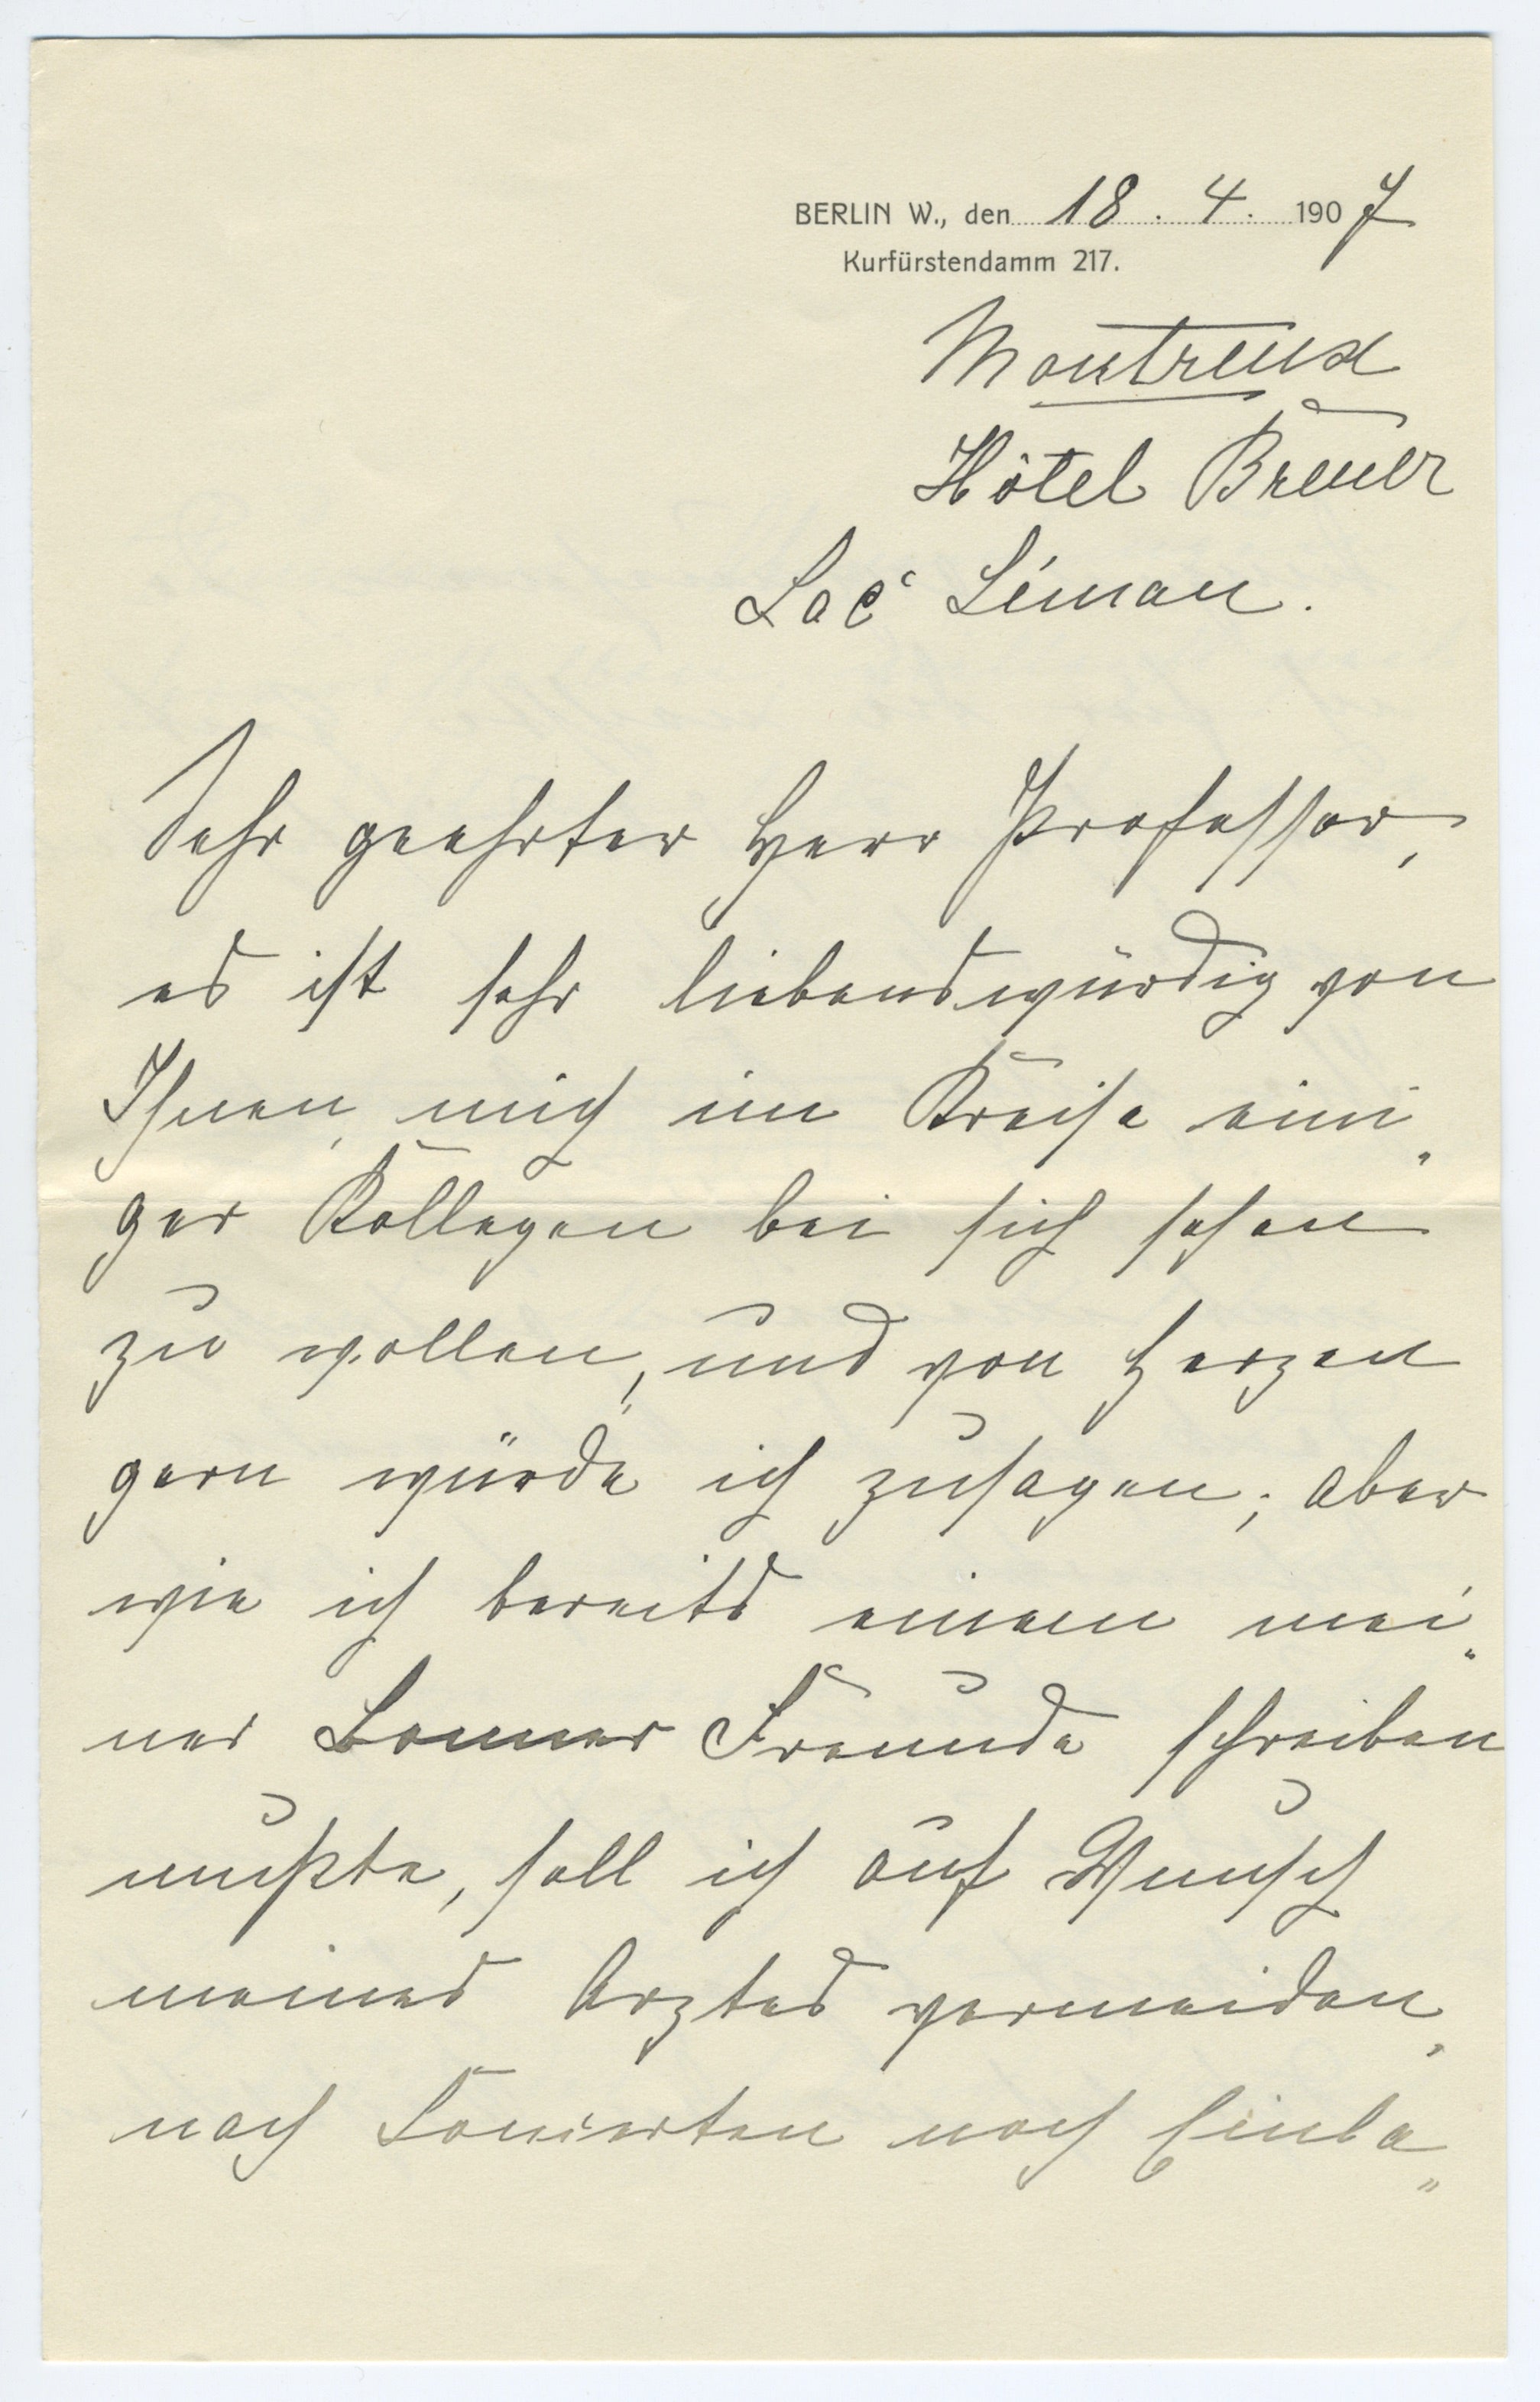 BERLIN W., den 18. 4. 1907
Kurfürstendamm 217.
Montreux
Hôtel Breuer
Lac Léman.
Sehr geehrter Herr Professor,
es ist sehr liebenswürdig von
Ihnen, mich im Kreise eini„
ger Kollegen bei sich sehen
zu wollen, und von Herzen
gern würde ich zusagen; aber
wie ich bereits einem mei„
ner Bonner Freunde schreiben
mußte, soll ich auf Wunsch
meines Arztes vermeiden,
nach Konzerten noch Einla„